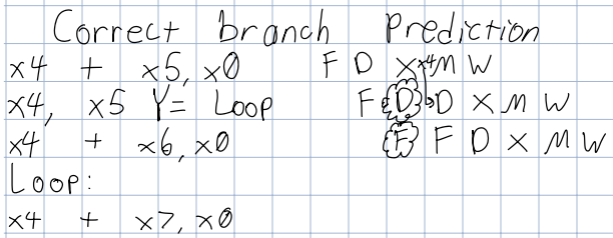 Correct branch Prediction
x4 + x5, x0 F D X x4 M W
x4, x5 Y= Loop F D D X M W
x4 + x6, x0 F F D X M W
Loop:
x4 + x7, x0